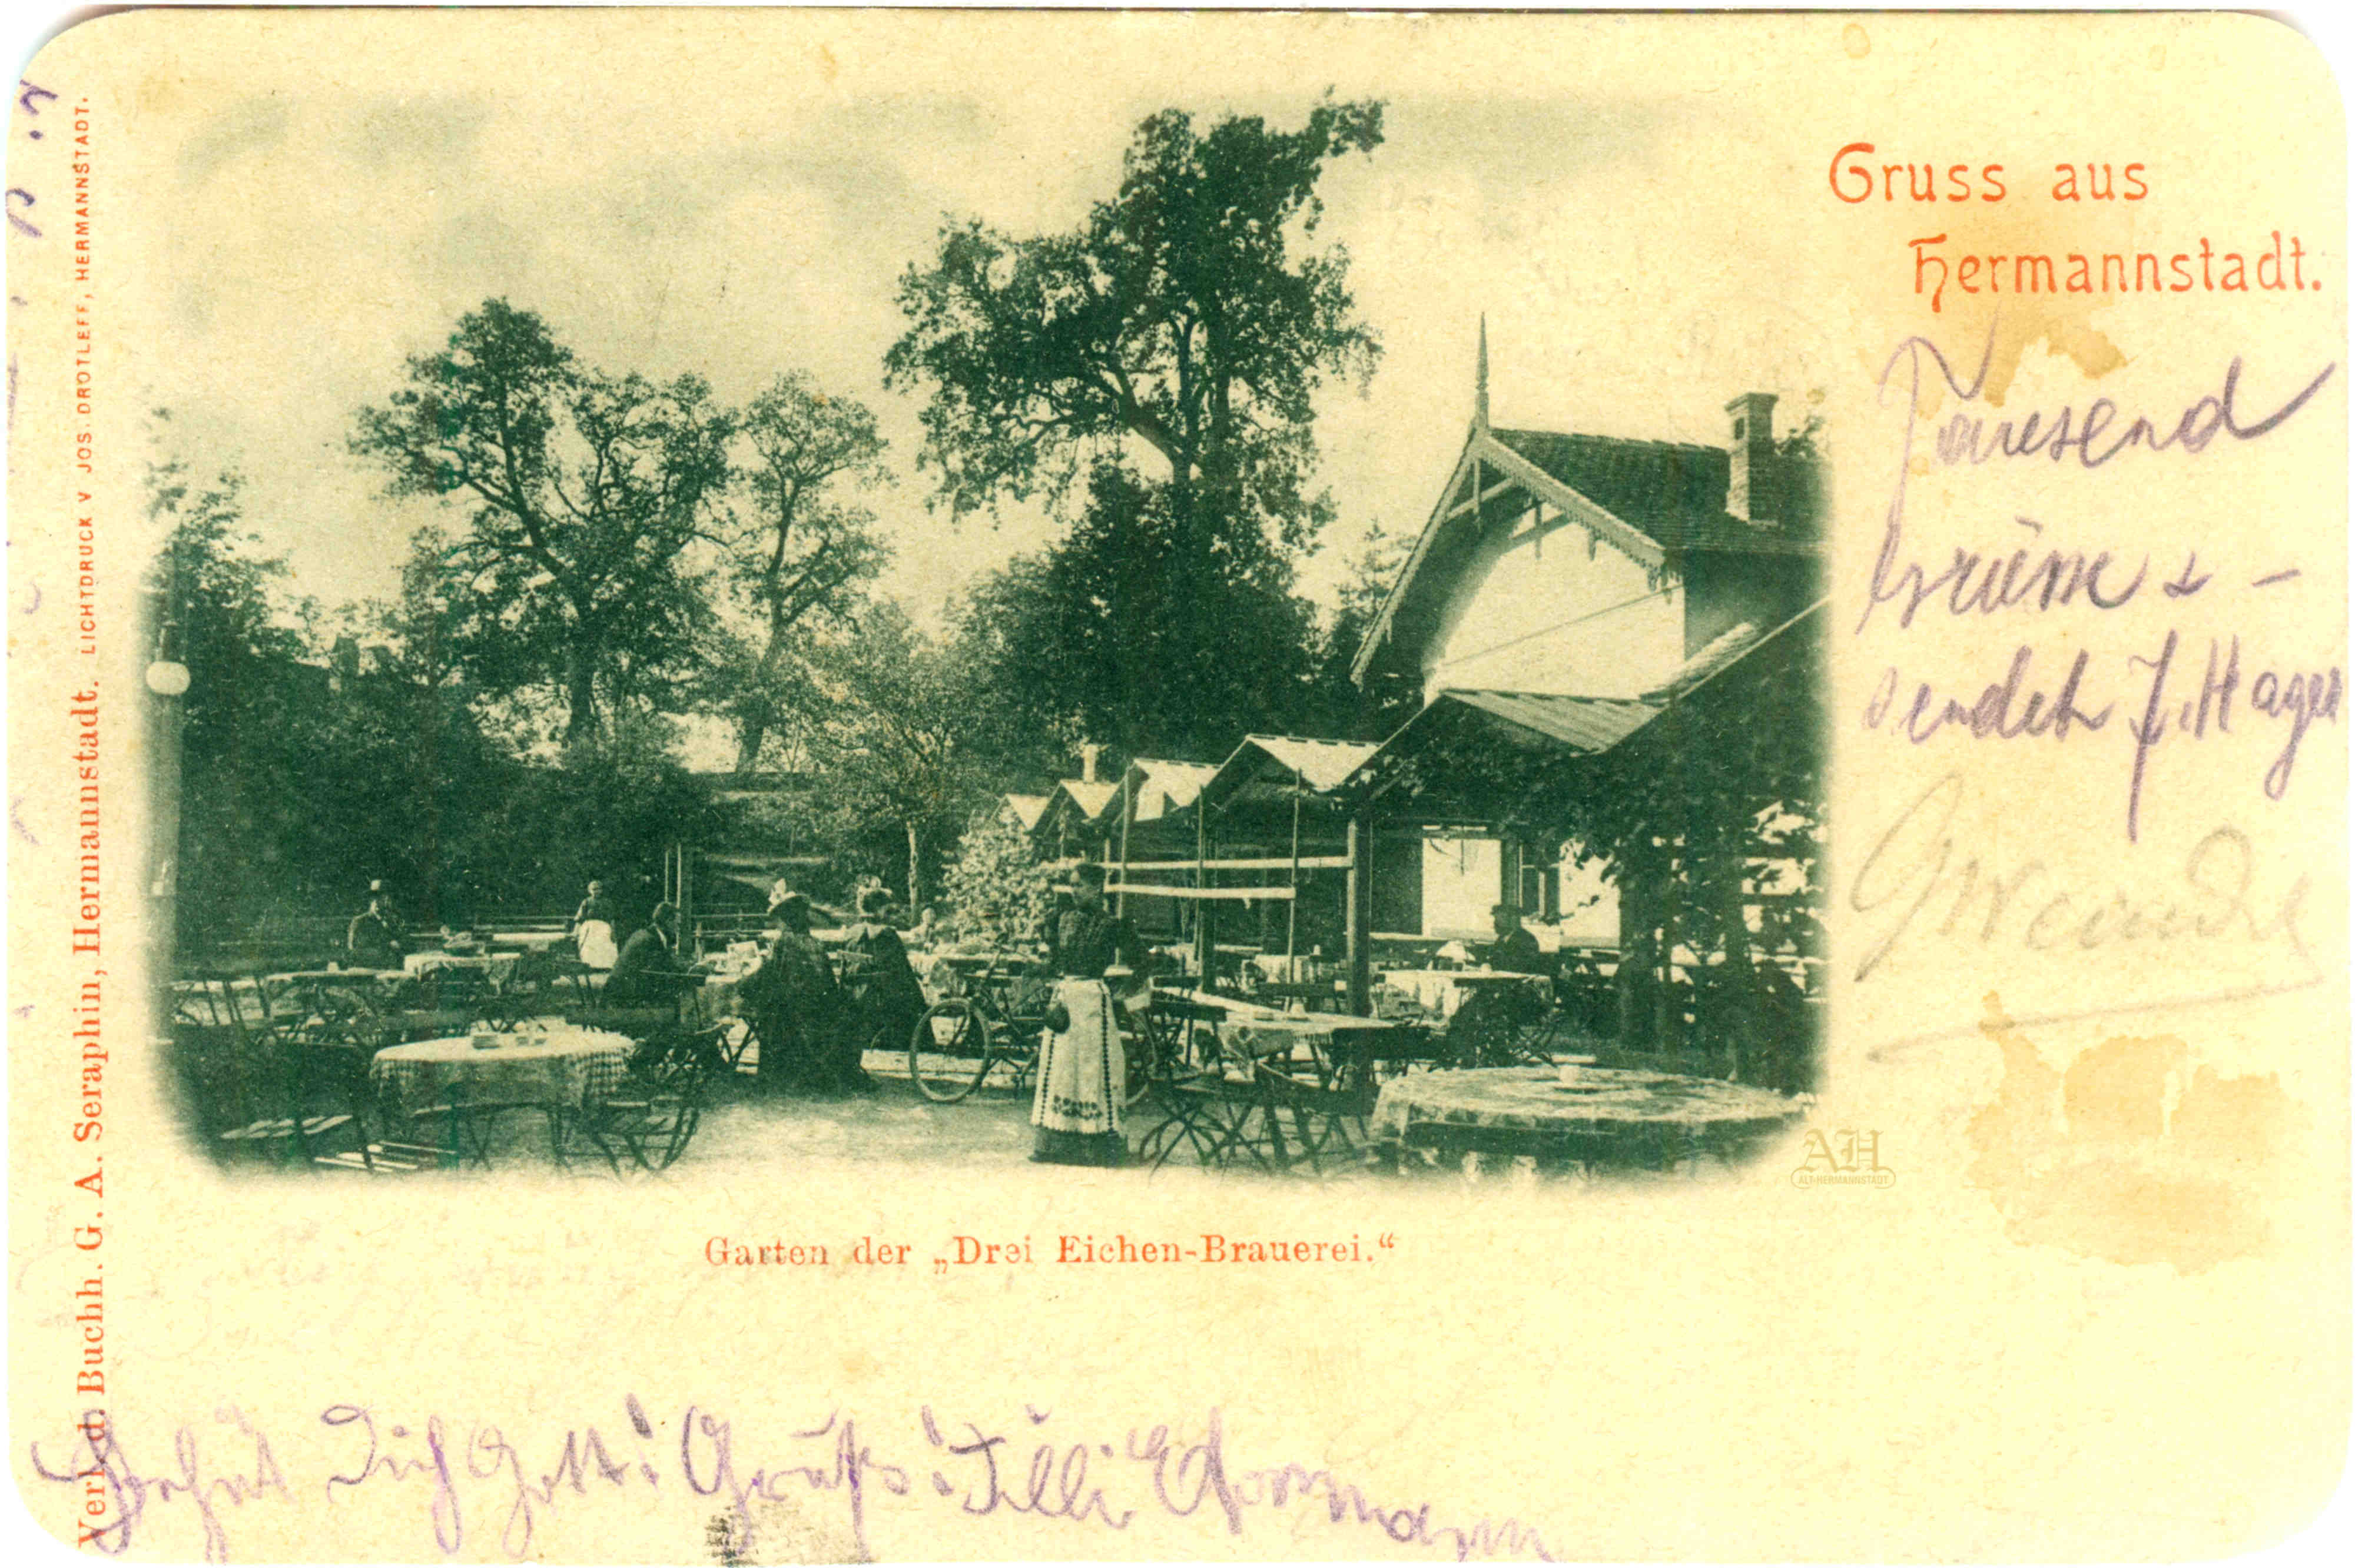 Gruss aus
Hermannstadt.
Tausend
Grüsse &
sendet J. Hager
Garten der „Drei Eichen-Brauerei.“
Behüt Dich Gott! Gruß! Tilli
Verl. d. Buchh. G. A. Seraphin, Hermannstadt. LICHTDRUCK v JOS. DROTLEFF, HERMANNSTADT.
AH
ALT-HERMANNSTADT